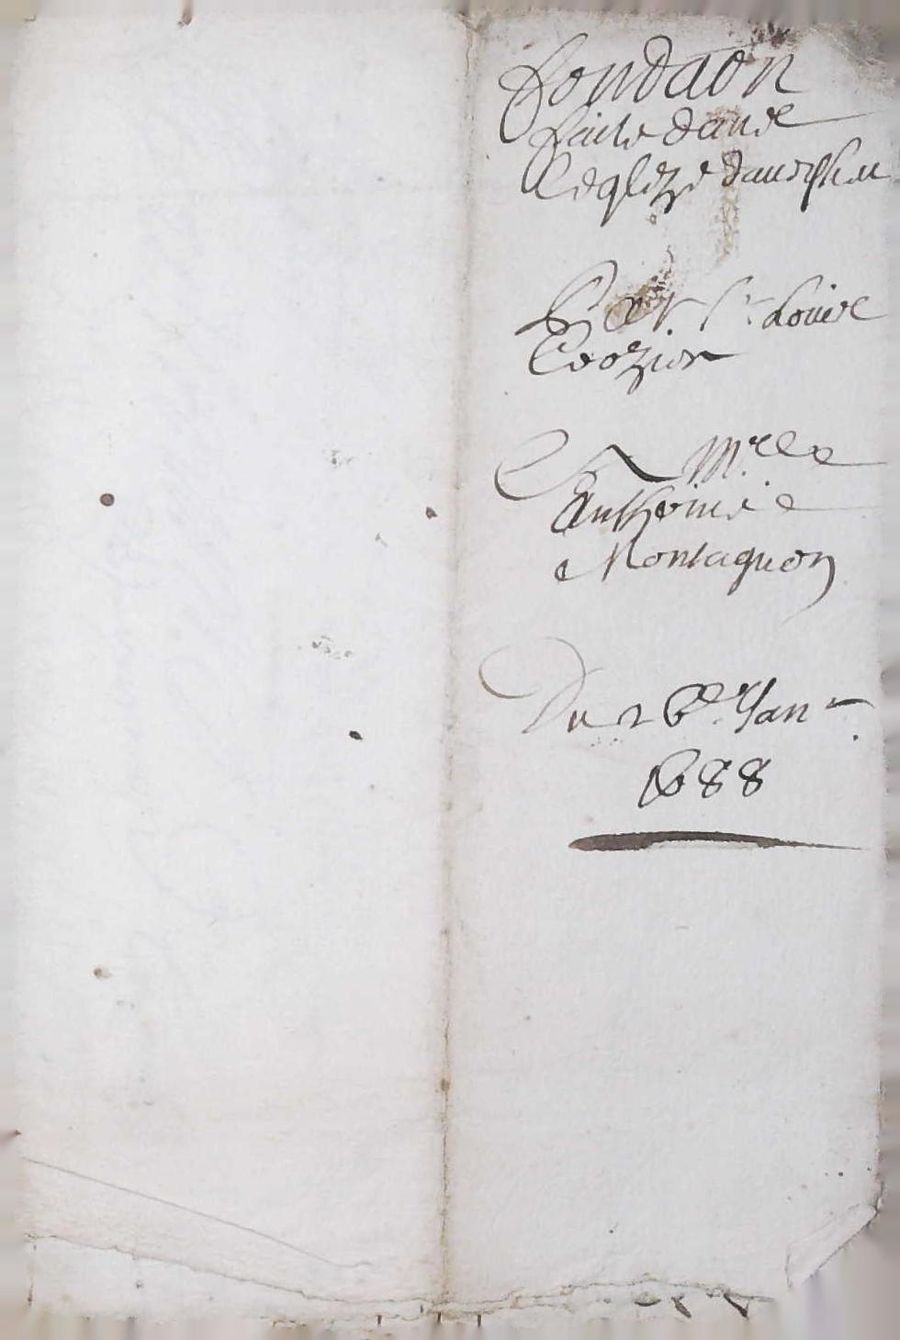 fondaon
faite dans
leglize
Par Sr Louis
Crozier
Et Mre
Anthoine
Montagnon
Du 26e Janr
1688